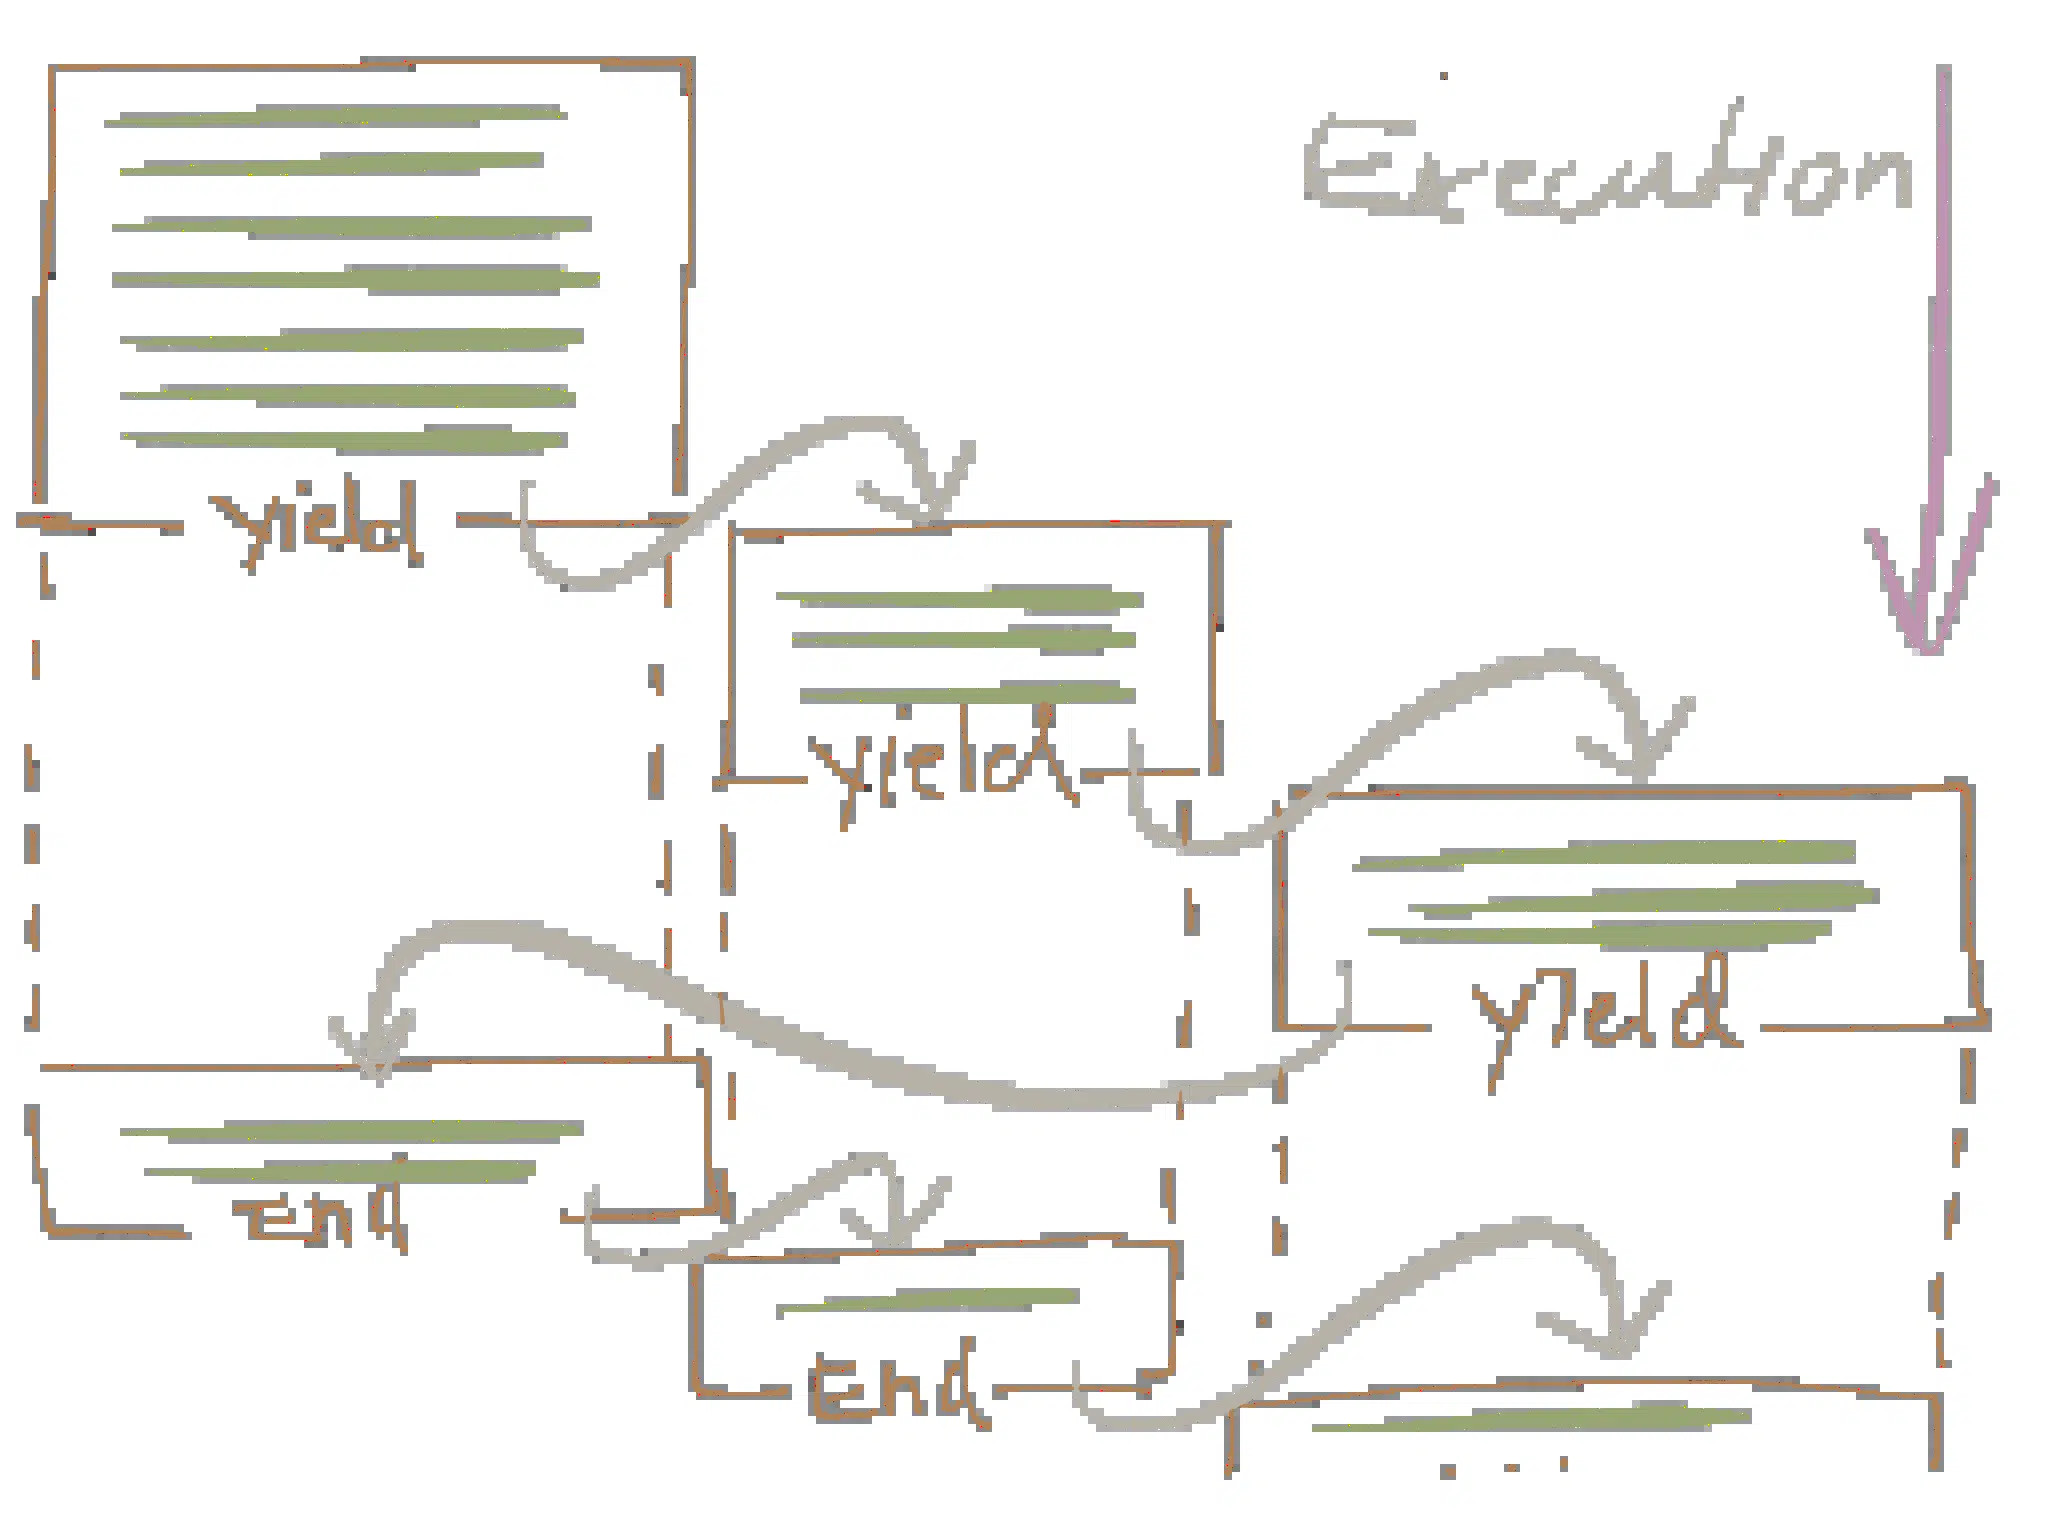 Execution
yield
yield
yield
End
End